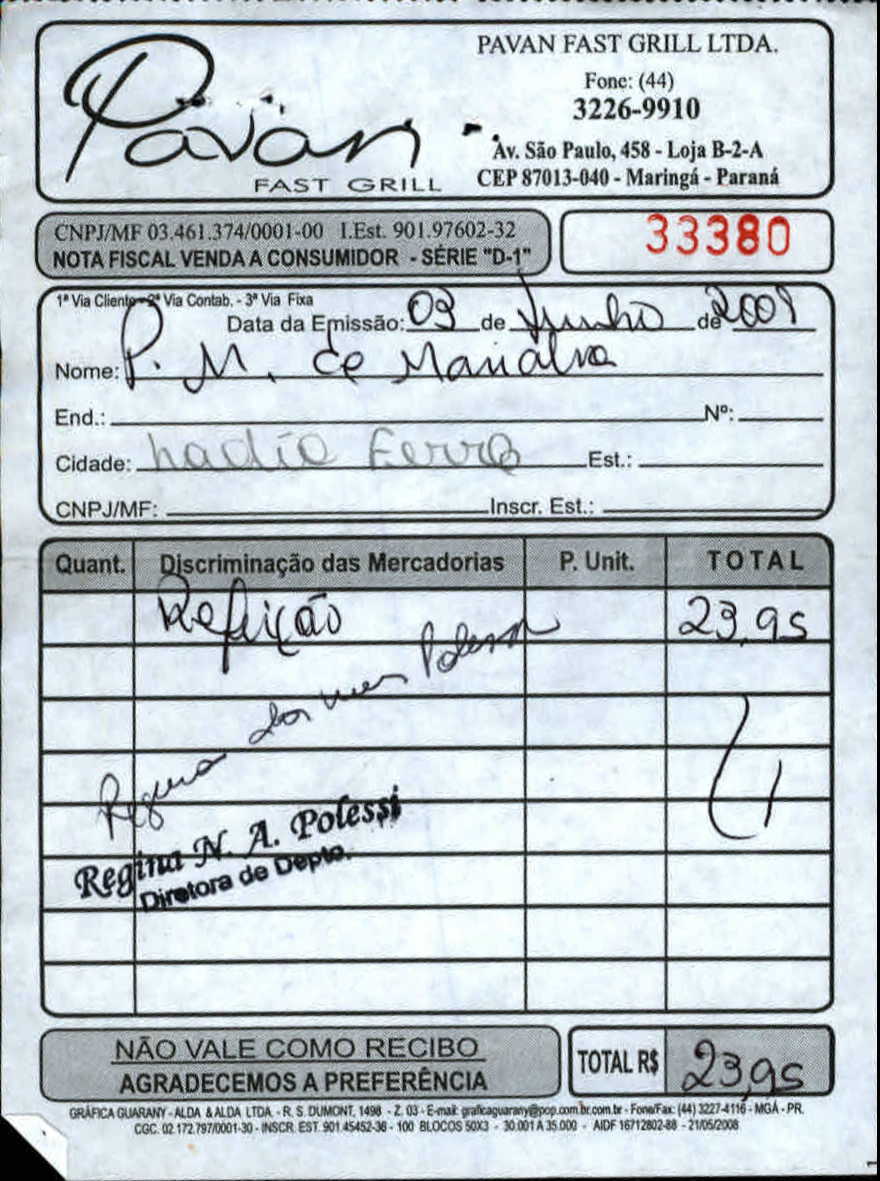 Pavan
FAST GRILL
PAVAN FAST GRILL LTDA.
Fone: (44)
3226-9910
Av. São Paulo, 458 - Loja B-2-A
CEP 87013-040 - Maringá - Paraná
CNPJ/MF 03.461.374/0001-00 I.Est. 901.97602-32
NOTA FISCAL VENDA A CONSUMIDOR - SÉRIE "D-1"
33380
1ª Via Cliente - 2ª Via Contab. - 3ª Via Fixa
Data da Emissão: 03 de Junho de 2009
Nome: P. M. de Marialva
End.: Nº:
Cidade: Est.:
CNPJ/MF: Inscr. Est.:
Quant. Discriminação das Mercadorias P. Unit. TOTAL
Refeição 23,95
Regina Polessi
Regina N. A. Polessi
Diretora de Depto.
NÃO VALE COMO RECIBO
AGRADECEMOS A PREFERÊNCIA
TOTAL R$ 23,95
GRÁFICA GUARANY - ALDA & ALDA LTDA. - R. S. DUMONT, 1498 - Z. 03 - E-mail: graficaguarany@pop.com.br.com.br - Fone/Fax: (44) 3227-4116 - MGÁ - PR.
CGC. 02.172.797/0001-30 - INSCR. EST. 901.45452-36 - 100 BLOCOS 50X3 - 30.001 A 35.000 - AIDF 16712802-88 - 21/05/2008